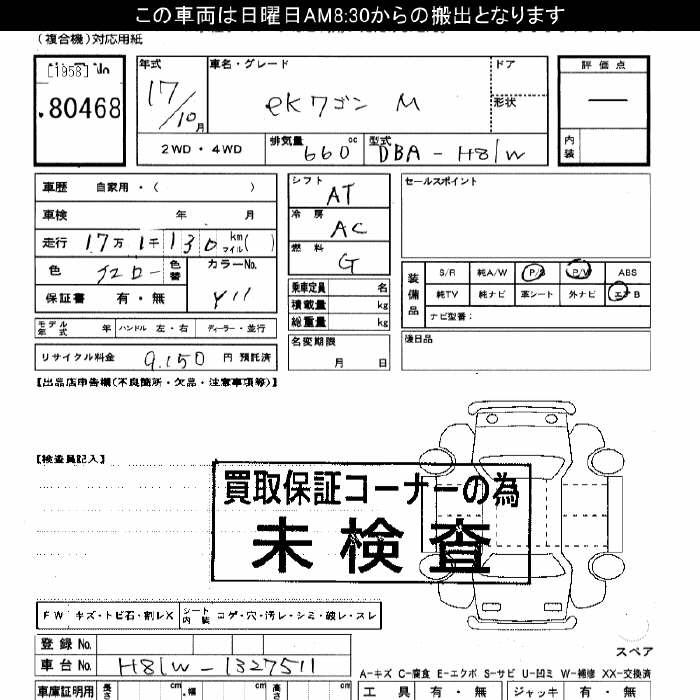 この車両は日曜日AM8:30からの搬出となります
(複合機)対応用紙
[1958]
80468
年式 17/10月
車名・グレード ekワゴン M
ドア
形状
評価点
内装
2WD・4WD
排気量 660 cc
型式 DBA-H81W
車歴 自家用・( )
車検 年 月
走行 17万1千130 km マイル( )
色 イエロー 色替
カラーNo. Y11
保証書 有・無
シフト AT
冷房 AC
燃料 G
乗車定員 名
積載量 kg
総重量 kg
名変期限
月 日
セールスポイント
装備品
S/R 純A/W P/S P/W ABS
純TV 純ナビ 革シート 外ナビ エアB
ナビ型番:
後日品
モデル年式 年 ハンドル 左・右 ディーラー・並行
リサイクル料金 9,150 円 預託済
【出品店申告欄(不良箇所・欠品・注意事項等)】
【検査員記入】
買取保証コーナーの為
未検査
FW キズ・トビ石・割レX シート内装 コゲ・穴・汚レ・シミ・破レ・スレ
登録No.
車台No. H81W-1327511
スペア
A-キズ C-腐食 E-エクボ S-サビ U-凹ミ W-補修 XX-交換済
車庫証明用 長さ cm 幅 cm 高さ cm
工具 有・無 ジャッキ 有・無